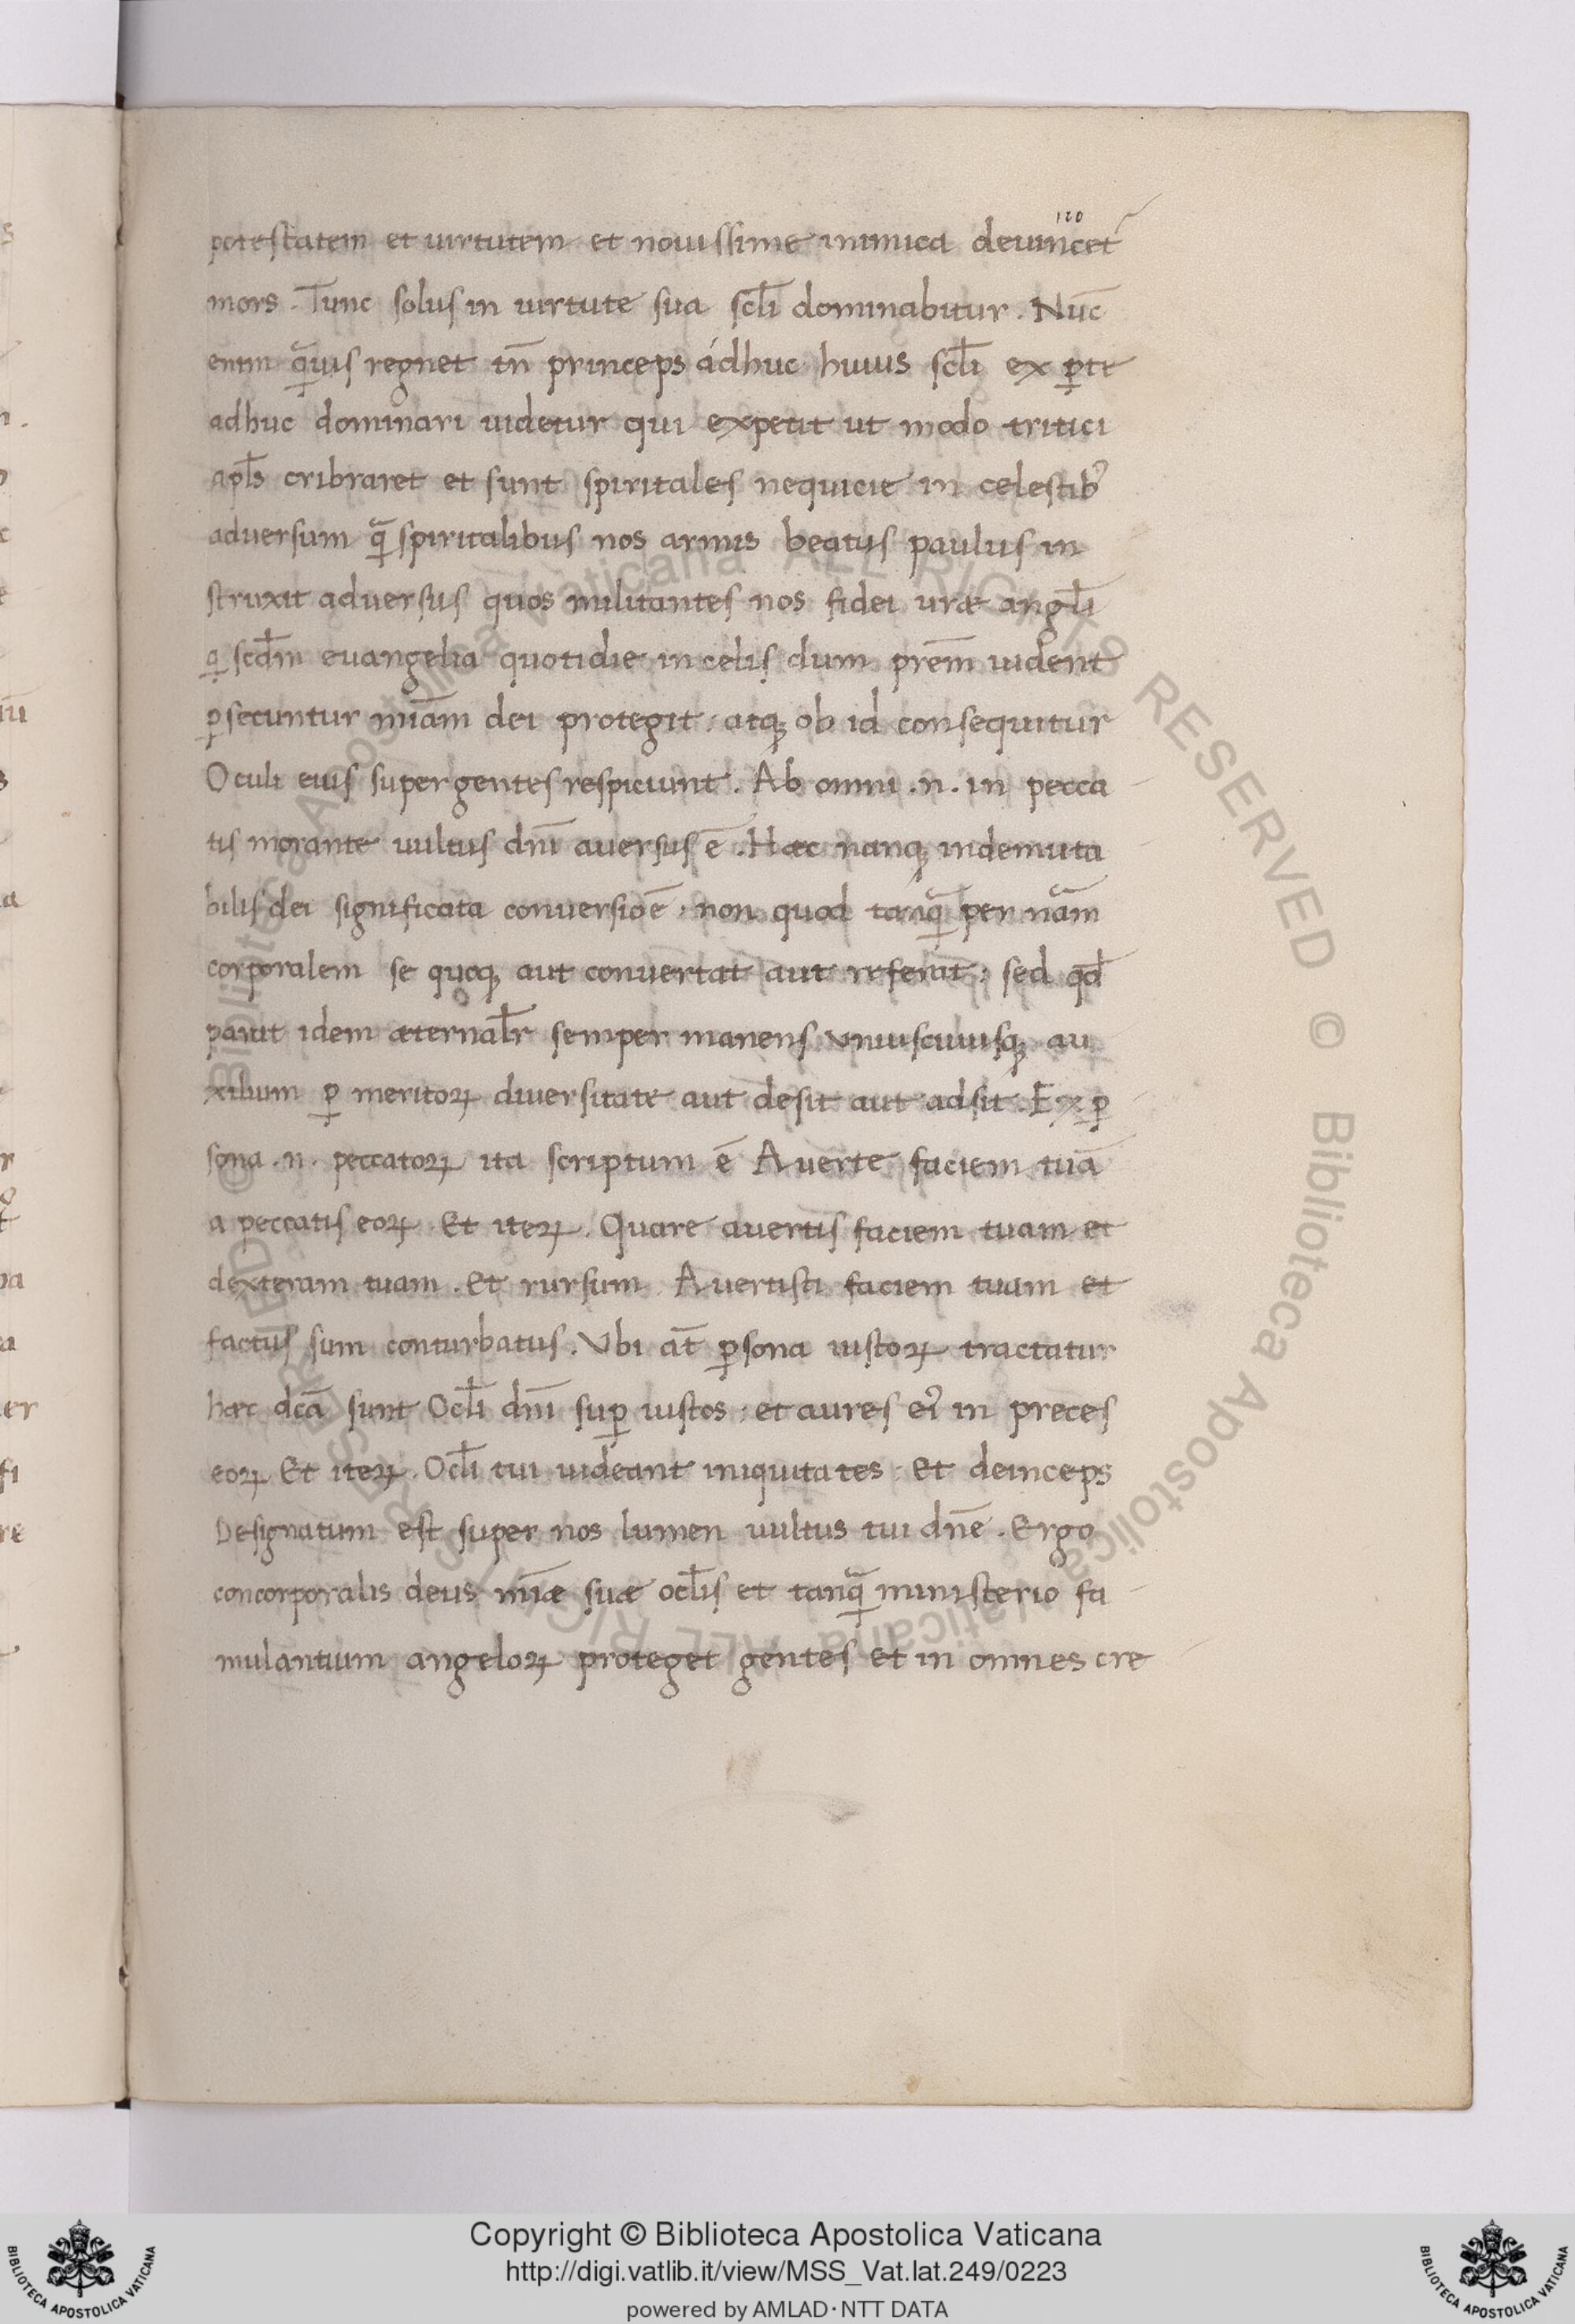 120
potestatem et uirtutem et nouissime inimica deuincet᷑
mors. Tunc solus in uirtute sua scl̄i dominabitur. Nūc
enim qͣuis regnet tn̄ princeps adhuc huius scl̄i ex ꝑte
adhuc dominari uidetur qui expetit ut modo tritici
apl̄s cribraret et sunt spiritales nequicie in celestibꝰ
aduersum qͣ spiritalibus nos armis beatus paulus in
struxit aduersus quos militantes nos fidei uræ angl̄i
q scdm̄ euangelia quotidie in celis dum prēm uident
ꝑsecuntur miām dei protegit. atqꝫ ob id consequitur
Oculi eius super gentes respiciunt. Ab omni .n. in pecca
tis morante uultus dn̄i auersus ē. Hæc nanqꝫ indemuta
bilis dei significata conuersio ē. non quod tanqͣ per nām
corporalem se quoqꝫ aut conuertat aut referat: sed qd̄
parit idem æternal̄r semper manens vniuscuiusqꝫ au
xilium ꝓ meritoꝝ diuersitate aut desit aut adsit. Ex ꝑ
sona .n. peccatoꝝ ita scriptum ē Auerte faciem tuā
a peccatis eoꝝ. Et iteꝝ. Quare auertis faciem tuam et
dexteram tuam. Et rursum. Auertisti faciem tuam et
factus sum conturbatus. Vbi at̄ ꝑsona iustoꝝ tractatur
hæc dcā sunt Ocl̄i dn̄i suꝑ iustos: et aures eiꝰ in preces
eoꝝ. Et iteꝝ. Ocl̄i tui uideant iniquitates. Et deinceps
Designatum est super nos lumen uultus tui dn̄e. Ergo
concorporalis deus miǣ suæ ocl̄is et tanqͣ ministerio fa
mulantium angeloꝝ proteget gentes et in omnes cre
Copyright © Biblioteca Apostolica Vaticana
http://digi.vatlib.it/view/MSS_Vat.lat.249/0223
powered by AMLAD·NTT DATA
BIBLIOTECA APOSTOLICA VATICANA
BIBLIOTECA APOSTOLICA VATICANA
© Biblioteca Apostolica Vaticana ALL RIGHTS RESERVED © Biblioteca Apostolica Vaticana ALL RIGHTS RESERVED